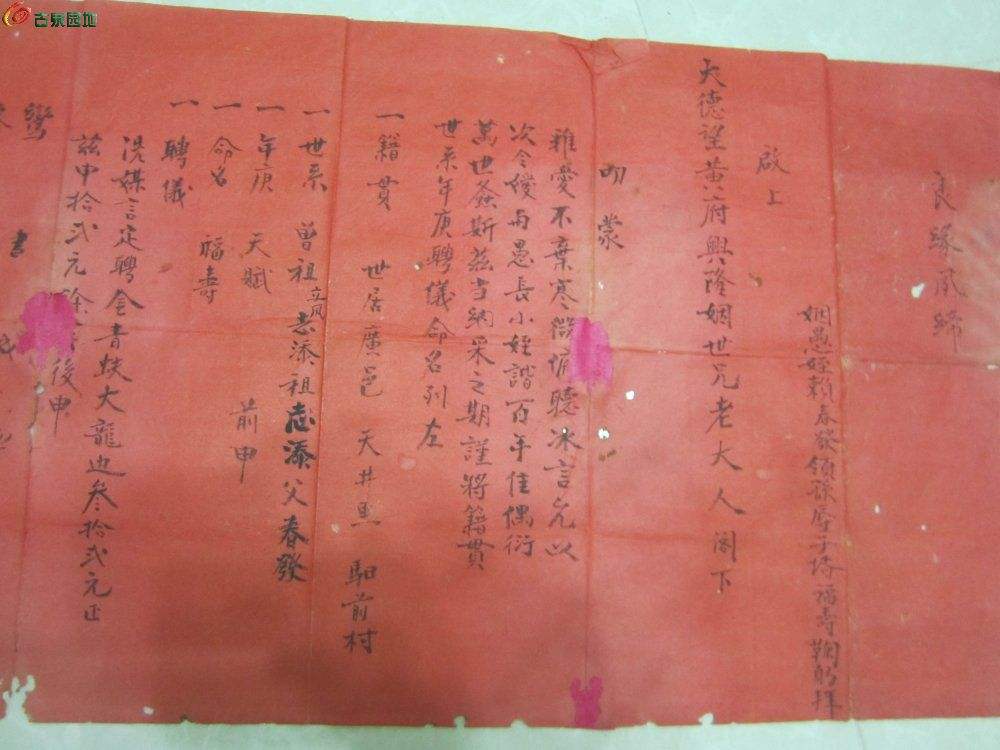 古泉园地
良緣夙締
姻愚姪賴春發領孫辱子壻福壽鞠躬拜
大德望黃府興隆姻世兄老大人閣下
啟上
叨蒙
雅愛不棄寒微 聽冰言允以
次令嬡與愚長小姪諧百年佳偶衍
萬世螽斯茲当納采之期謹將籍貫
世系年庚聘儀命名列左
一籍貫 世居廣邑 天井 前村
一世系 曾祖立凤志添祖志添父春發
一年庚 天賦 前申
一命名 福壽
一聘儀
憑媒言定聘金青蚨大龍 叁拾弍元正
茲申拾弍元餘 後申
鸞書